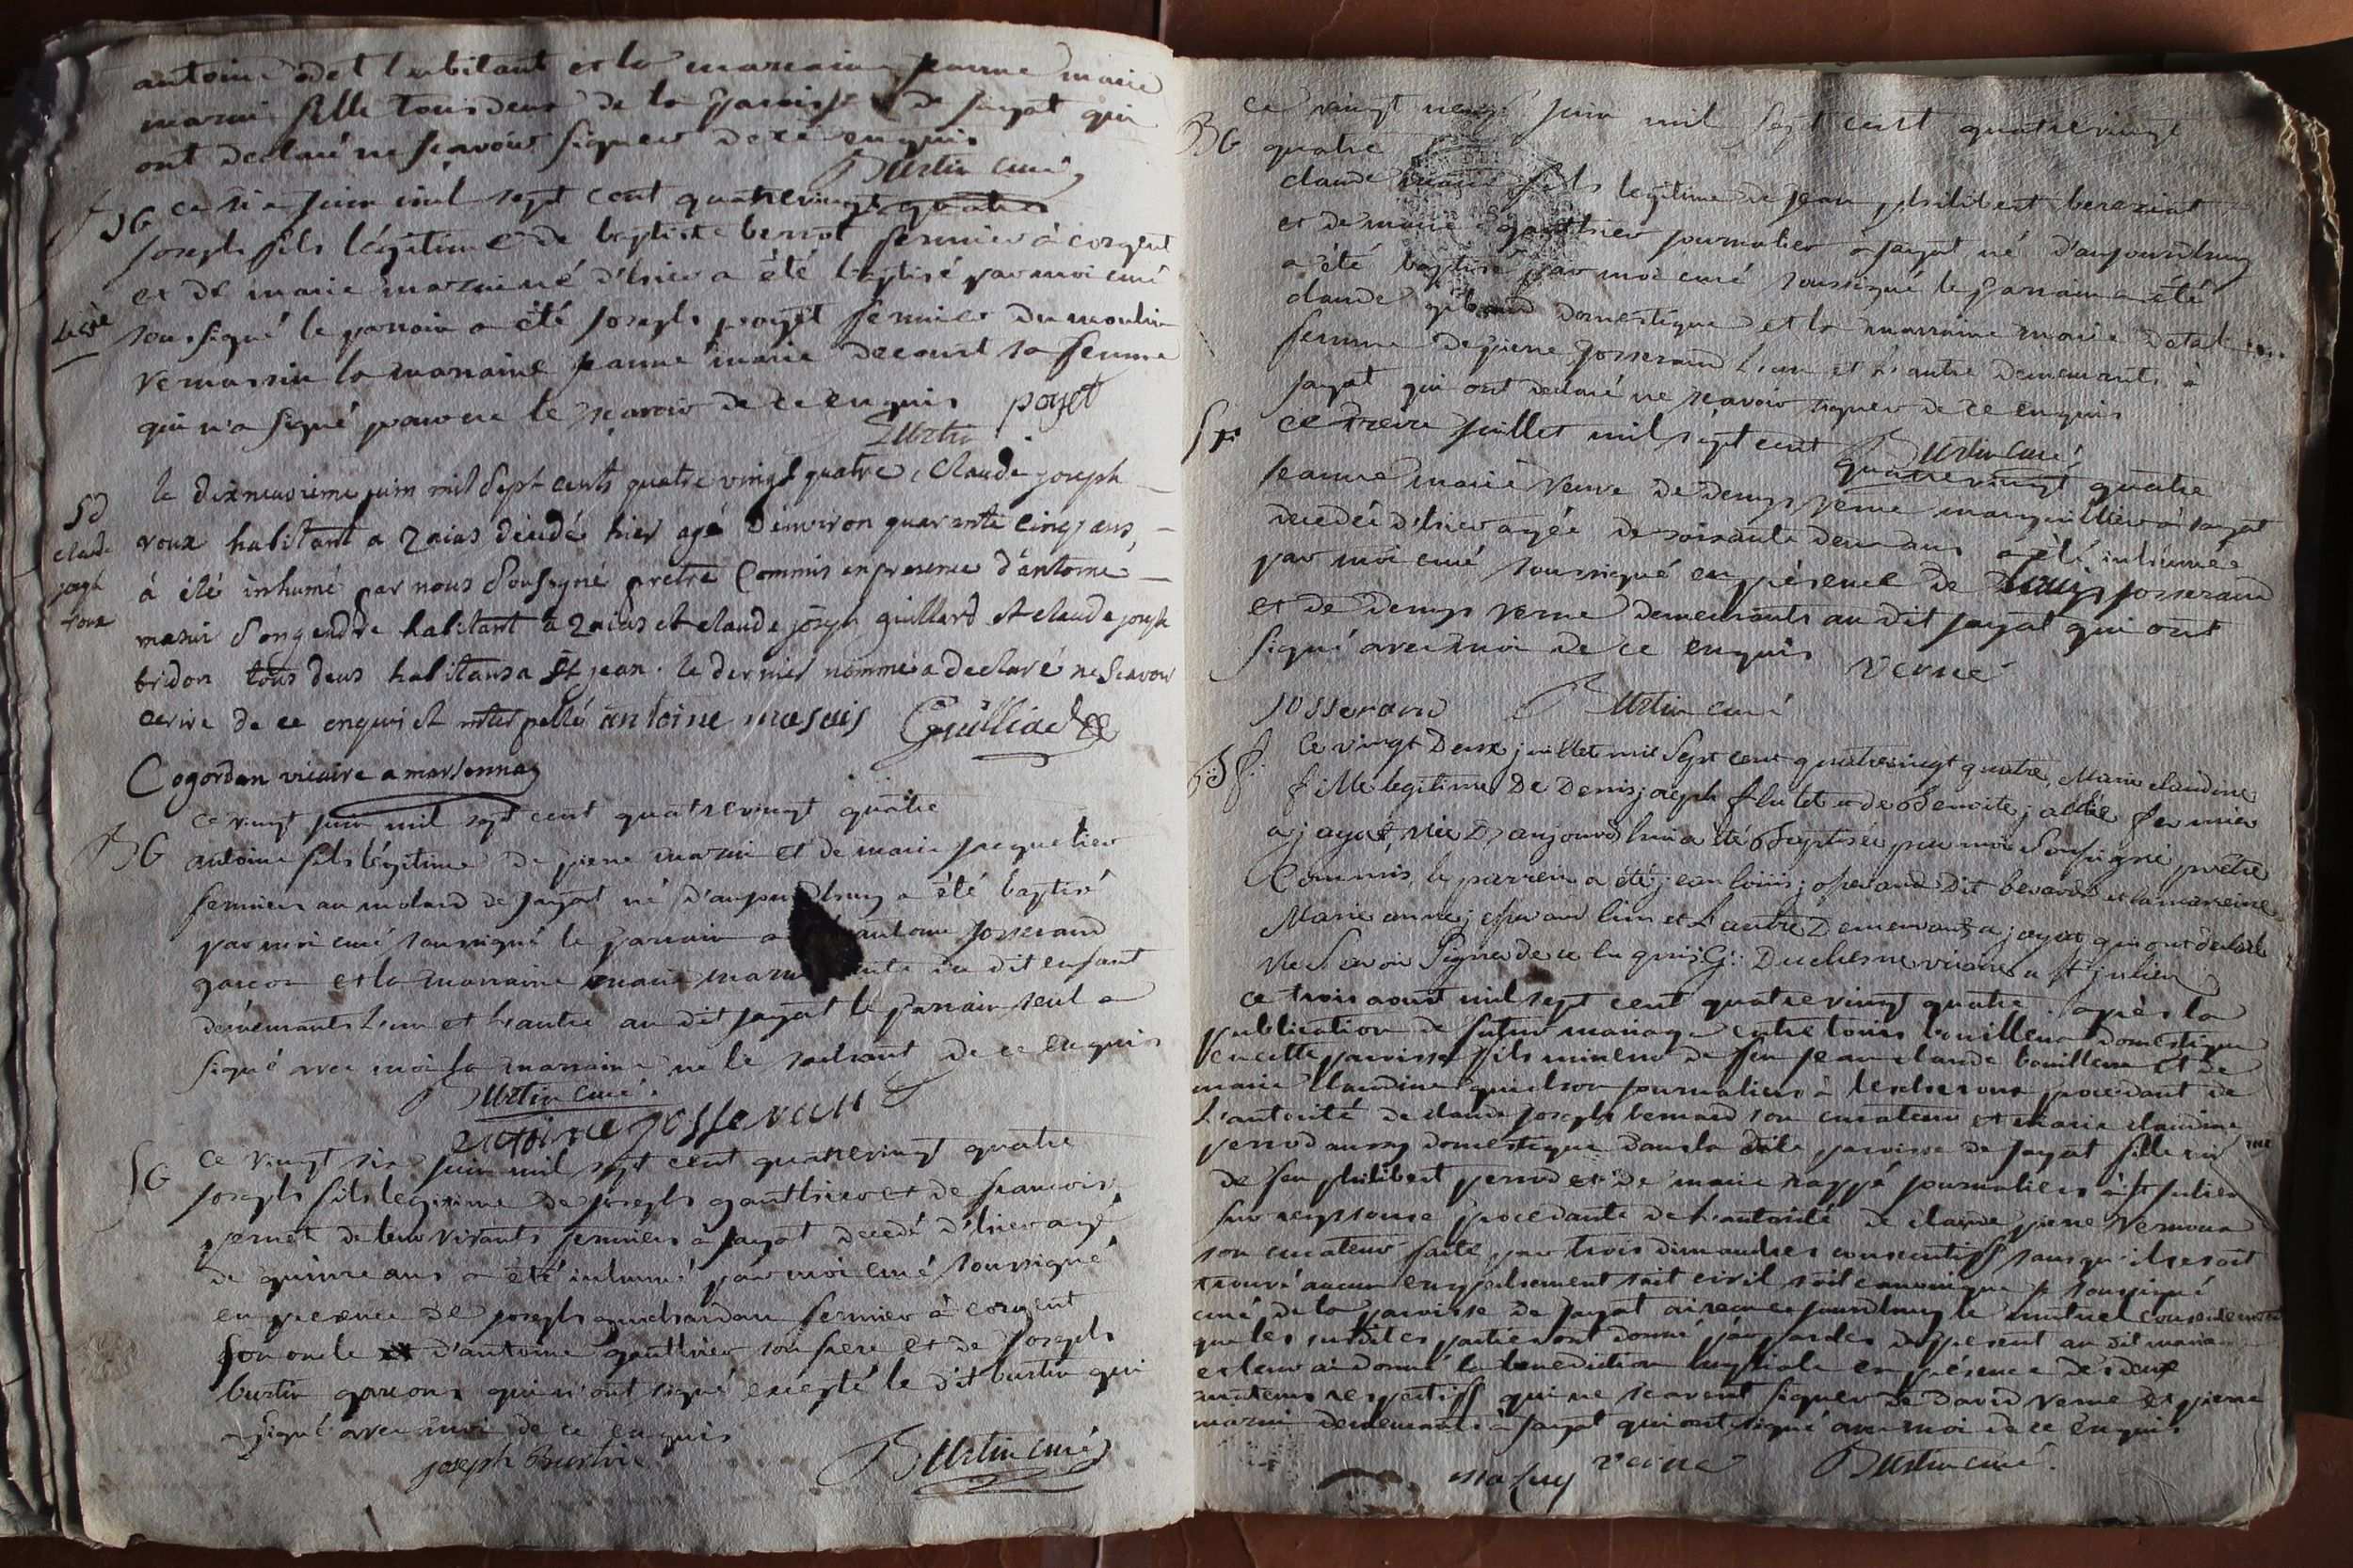 antoine odet habitant et la marraine jeanne marie
mazui fille tous deux de la paroisse de jayat qui
ont declaré ne scavoir signer de ce enquis
Burtin curé
BG ce six juin mil sept cent quatrevingt quatre
joseph fils légitime de baptiste berrot fermier à corgent
et de marie mazui né d'hier a été baptisé par moi curé
soussigné le parrain a été joseph poget fermier du moulin
la marraine jeanne marie decourt sa femme
qui n'a signé pour ne le scavoir de ce enquis poget
Burtin
le dixneuvieme juin mil Sept cents quatre vingt quatre, claude joseph
SD
claude
joseph
roux
roux habitant a decedé hier agé d'environ quarante cinq ans,
à été inhumé par nous Soussigné pretre Commis en presence d'antoine
masui Son gendre habitant a et claude joseph guillard et claude joseph
bridon tous deux habitans a St jean. le dernier nommé a declaré ne Scavoir
ecrire de ce enqui et interpellé antoine masuis Guilliard
Cogordan vicaire a marsonnas
ce vingt juin mil sept cent quatrevingt quatre
BG antoine fils légitime de pierre mazui et de marie jacquetier
fermiers au molard de jayat né d'aujourdhuy a été baptisé
par moi curé soussigné le parrain a antoine josserand
garçon et la marraine marie mazui tante du dit enfant
demeurants l'un et l'autre au dit jayat le parrain seul a
signé avec moi la marraine ne le sachant de ce enquis
Burtin curé
antoine josserand
SG ce vingt six juin mil sept cent quatrevingt quatre
joseph fils legitime de joseph gauthier et de francoise
pernet de leur vivants fermiers à jayat decedé d'hier agé
de quinze ans a été inhumé par moi curé soussigné
en presence de joseph guichardan fermier à corgent
son oncle d'antoine gauthier son frere et de joseph
burtin garcons qui n'ont signé excepté le dit burtin qui
a signé avec moi de ce enquis
joseph Burtin
Burtin curé
ce vingt neuf juin mil sept cent quatrevingt
BG quatre
claude marie fils légitime de jean philibert bereziat
et de marie gauthier journalier a jayat né d'aujourdhuy
a été baptisé par moi curé soussigné le parrain a été
claude domestique et la marraine marie
femme de pierre josserand l'un et l'autre demeurants à
jayat qui ont declaré ne scavoir signer de ce enquis
Burtin curé
ce treize juillet mil sept cent quatrevingt quatre
jeanne marie veuve de denys verne marguillier à jayat
decedée d'hier agée de soixante deux ans a été inhumée
par moi curé soussigné en présence de Louis josserand
et de denys verne demeurants au dit jayat qui ont
signé avec moi de ce enquis verne
josserand Burtin curé
Ce vingt Deux juillet mil Sept cent quatrevingt quatre, Marie claudine
fille legitime De Denis joseph et de Benoite fermier
a jayat, née D'aujourd'hui a été Baptisée par moi Soussigné prêtre
Commis, le parrein a été jean louis josserand Dit berard et la marreine
Marie anne josserand l'un et L'autre Demeurants a jayat qui ont declaré
ne Savoir Signer de ce enquis G: Duchesne vicaire a St julien
ce trois aoust mil sept cent quatrevingt quatre après la
publication de futur mariage entre louis bouilleux domestique
en cette paroisse fils mineur de feu jean claude bouilleux et de
marie claudine journaliers à lescheroux procedant de
l'autorité de claude joseph bernard son curateur et marie claudine
perrod aussy domestique dans la dite paroisse de jayat fille mineure
de feu philibert perrod et de marie journaliers à St julien
sur reyssouze procedante de l'autorité de claude pierre
son curateur faite par trois dimanches consecutifs sans qu'il se soit
trouvé aucun empeschement soit civil soit canonique je soussigné
curé de la paroisse de jayat ai recu ce jourdhuy le mutuel consentement
que les susdites parties ont donné par parolles de present au dit mariage
et leur ai donné la benediction nuptiale en présence des deux
curateurs respectifs qui ne scavent signer de david verne et pierre
mazui demeurants à jayat qui ont signé avec moi de ce enquis
masuy verne Burtin curé